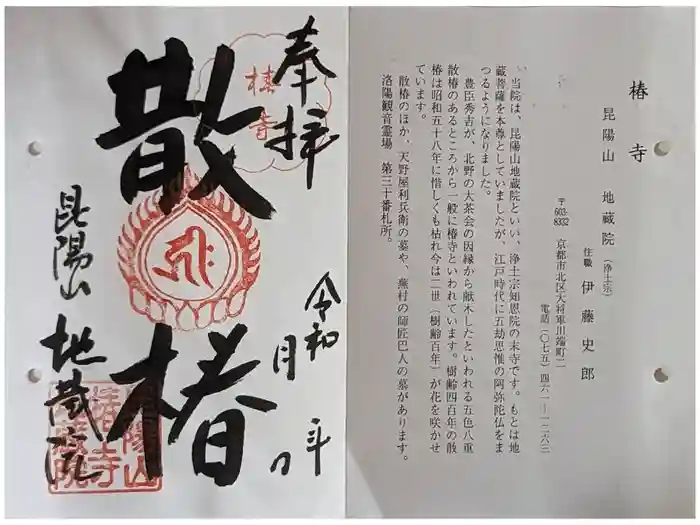 椿寺
昆陽山 地蔵院 (浄土宗)
住職 伊藤史郎
〒603-8332 京都市北区大将軍川端町二
電話(〇七五)四六一―一二六三
当院は、昆陽山地蔵院といい、浄土宗知恩院の末寺です。もとは地
蔵菩薩を本尊としていましたが、江戸時代に五劫思惟の阿弥陀仏をま
つるようになりました。
豊臣秀吉が、北野の大茶会の因縁から献木したといわれる五色八重
散椿のあるところから一般に椿寺といわれています。樹齢四百年の散
椿は昭和五十八年に惜しくも枯れ今は二世(樹齢百年)が花を咲かせ
ています。
散椿のほか、天野屋利兵衛の墓や、蕪村の師匠巴人の墓があります。
洛陽観音霊場 第三十番札所。
奉拝
椿寺
令和 年
月 日
散椿
昆陽山 地蔵院
昆陽山
椿寺
地蔵院